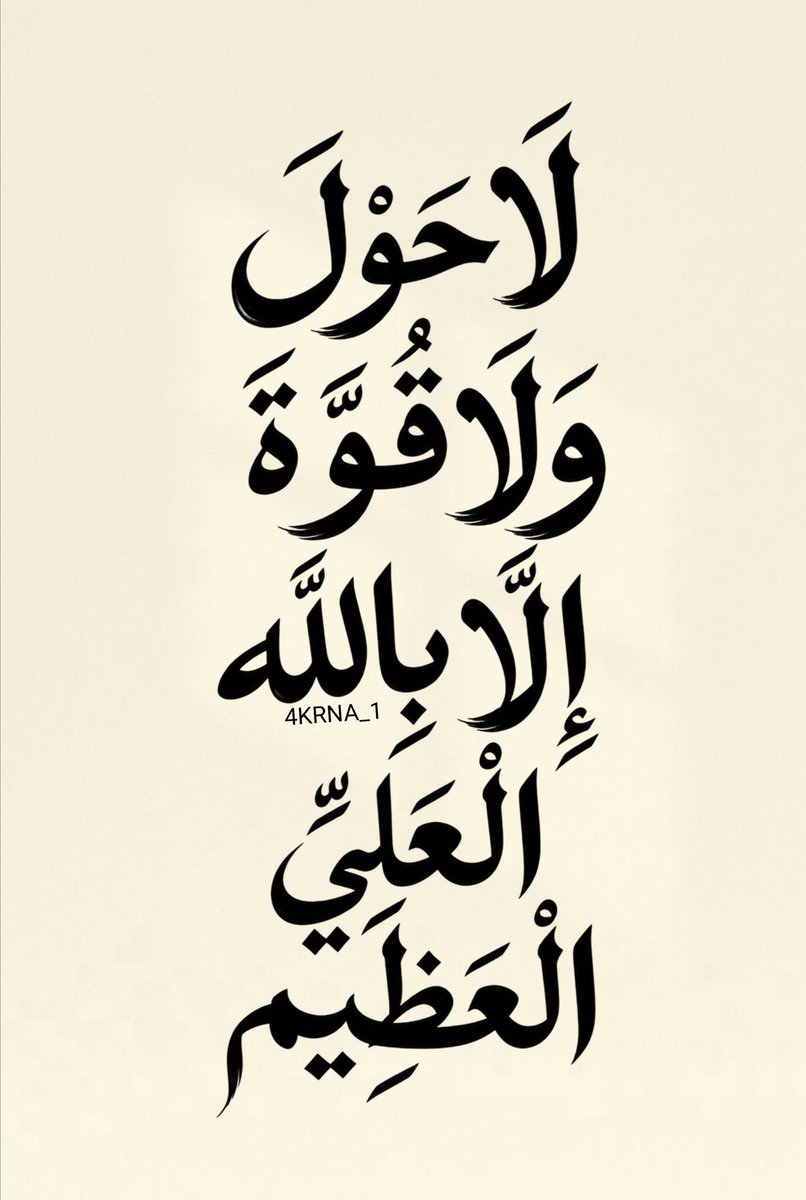 لَا حَوْلَ
وَلَا قُوَّةَ
إِلَّا بِاللَّه
4KRNA_1
الْعَلَيِّ
الْعَظِيم